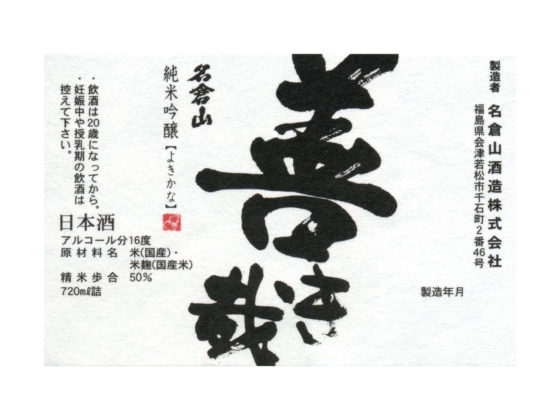 製造者 名倉山酒造株式会社
福島県会津若松市千石町2番46号
製造年月
善き哉
名倉山
純米吟醸【よきかな】
・飲酒は20歳になってから。
・妊娠中や授乳期の飲酒は
控えて下さい。
日本酒
アルコール分16度
原材料名 米(国産)・
米麹(国産米)
精米歩合 50%
720mℓ詰